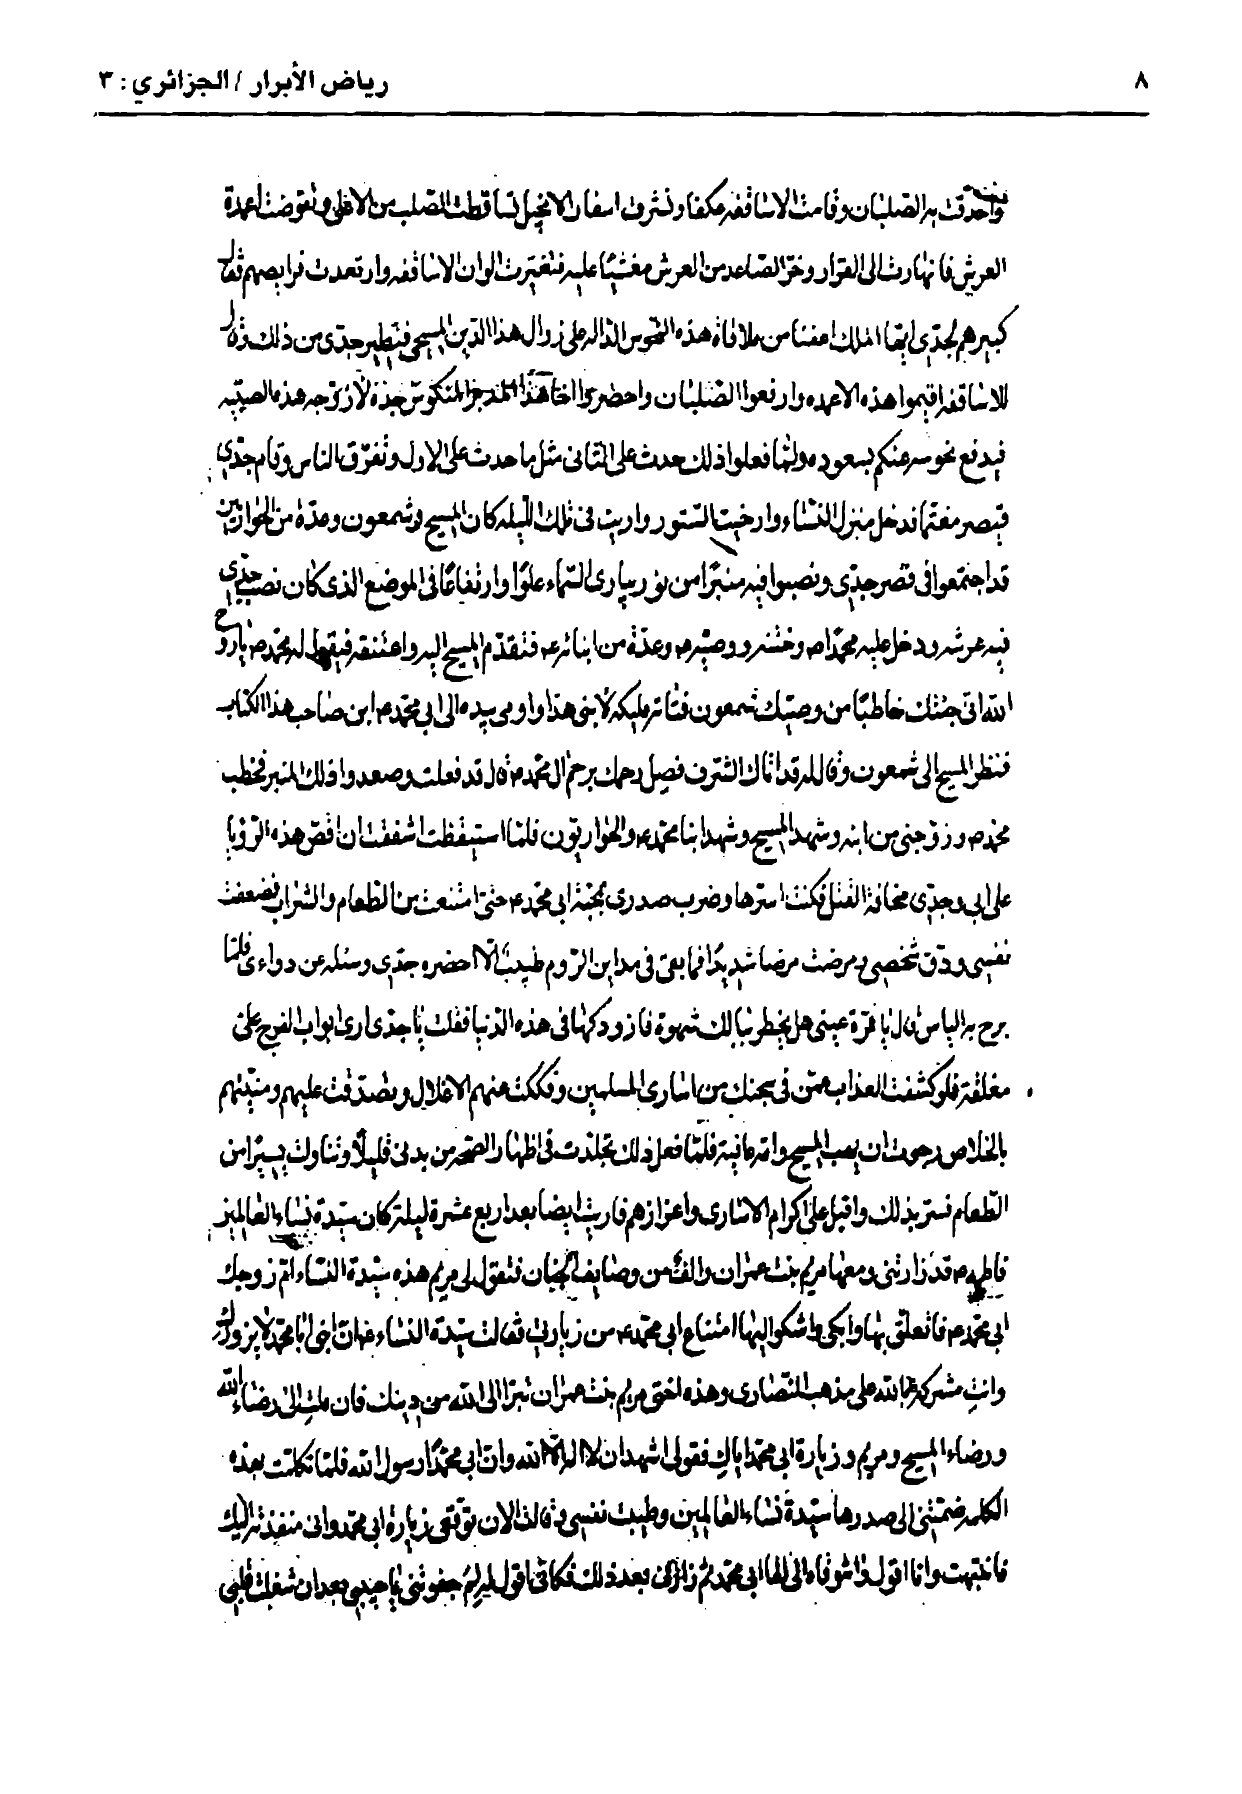 ٨
رياض الأبرار / الجزائري : ٣
واحدقت به الصلبان وقامت الاساقفه عكفا ونشرت اسفار الانجيل تساقطت الصلب من الاعلى وتقوضت اعمدة
العرش فانهارت الى القرار وخرّ الصاعد من العرش مغشيًا عليه فتغيّرت الوان الاساقفه وارتعدت فرايصهم فقال
كبيرهم لجدّى ايها الملك اعفنا من ملاقاة هذه النحوس الداله على زوال هذا الدّين المسيحى فتطير جدّى من ذلك وقال
للاساقفه اقيموا هذه الاعمده وارفعوا الصلبان واحضروا اخا هذا المدبر المنكوس جدّه لازوّجه هذه الصبيّه
فيدفع نحوسه عنكم بسعوده ولمّا فعلوا ذلك حدث على الثانى مثل ما حدث على الاول وتفرّق الناس وقام جدّى
قيصر مغتمّا فدخل منزل النسّاء وارخيت الستور واريت فى تلك الليله كان المسيح وشمعون وعدّة من الحواريين
قد اجتمعوا فى قصر جدّى ونصبوا فيه منبرًا من نور يبارى السّماء علوّا وارتفاعًا فى الموضع الذى كان نصب جدّى
فيه عرشه ودخل عليه محمّد ص وختنه ووصيّه ع وعدّة من ابنائه ع فتقدّم المسيح اليه واعتنقه فيقول له محمّد ص يا روح
الله انى جئتك خاطبًا من وصيّك شمعون فتاته مليكه لابنى هذا واومى بيده الى ابى محمّد ع ابن صاحب هذا الكتاب
فنظر المسيح الى شمعون وقال له قد اتاك الشرف فصل رحمك برحم ال محمّد ص قال قد فعلت وصعدوا ذلك المنبر فخطب
محمّد ص وزوجنى من ابنه وشهد المسيح وشهد ابنا محمّد ع والحواريّون فلمّا استيقظت اشفقت ان اقصّ هذه الرّؤيا
على ابى وجدّى مخافة القتل فكنت اسرّها وضرب صدرى بمحبّة ابى محمّد ع حتىّ امتنعت من الطّعام والشّراب فضعفت
نفسى ودق شخصى ومرضت مرضا شديدًا فما بقى فى مداين الرّوم طبيب الّا احضره جدّى وسئله عن دواءى فلمّا
برح به الياس قال يا قرّة عينى هل يخطر ببالك شهوة فازودكها فى هذه الدّنيا فقلت يا جدّى ارى ابواب الفرج علىّ
مغلقة فلو كشفت العذاب عمّن فى سجنك من اسارى المسلمين وفككت عنهم الاغلال وتصدّقت عليهم ومنيّتهم
بالخلاص رجوت ان يهب المسيح وامّه عافية فلمّا فعل ذلك تجلّدت فى اظهار الصّحه من بدنى قليلًا وتناولت يسيرًا من
الطّعام فسرّ بذلك واقبل على اكرام الاسارى واعزازهم فاريت ايضا بعد اربع عشرة ليلة كان سيّدة نساء العالمين
فاطمه ع قد زارتنى ومعها مريم بنت عمران والف من وصايف الجنان فتقول لى مريم هذه سيّدة النسّاء امّ زوجك
ابى محمّد ع فاتعلّق بها وابكى واشكو اليها امتناع ابى محمّد ع من زيارتى فقالت سيّدة النسّاء ع ان ابنى ابا محمّد لا يزورك
وانتِ مشركة بالله على مذهب النّصارى وهذه اختى مريم بنت عمران تبرا الى الله من دينك فان ملتِ الى رضاء الله
ورضاء المسيح ومريم وزيارة ابى محمّد اياكِ فقولى اشهد ان لا اله الّا الله وانّ ابى محمّدًا رسول الله فلمّا تكلمت بهذه
الكلمه ضمتّنى الى صدرها سيّدة نساء العالمين وطيبت نفسى وقالت الان توقّعى زيارة ابى محمّد وانى منفذته اليك
فانتبهت وانا اقول واشوقاه الى لقا ابى محمّد ثم زارنى بعد ذلك فكانّى اقول له لِمَ جفوتنى يا حبيبى بعد ان شغلت قلبى